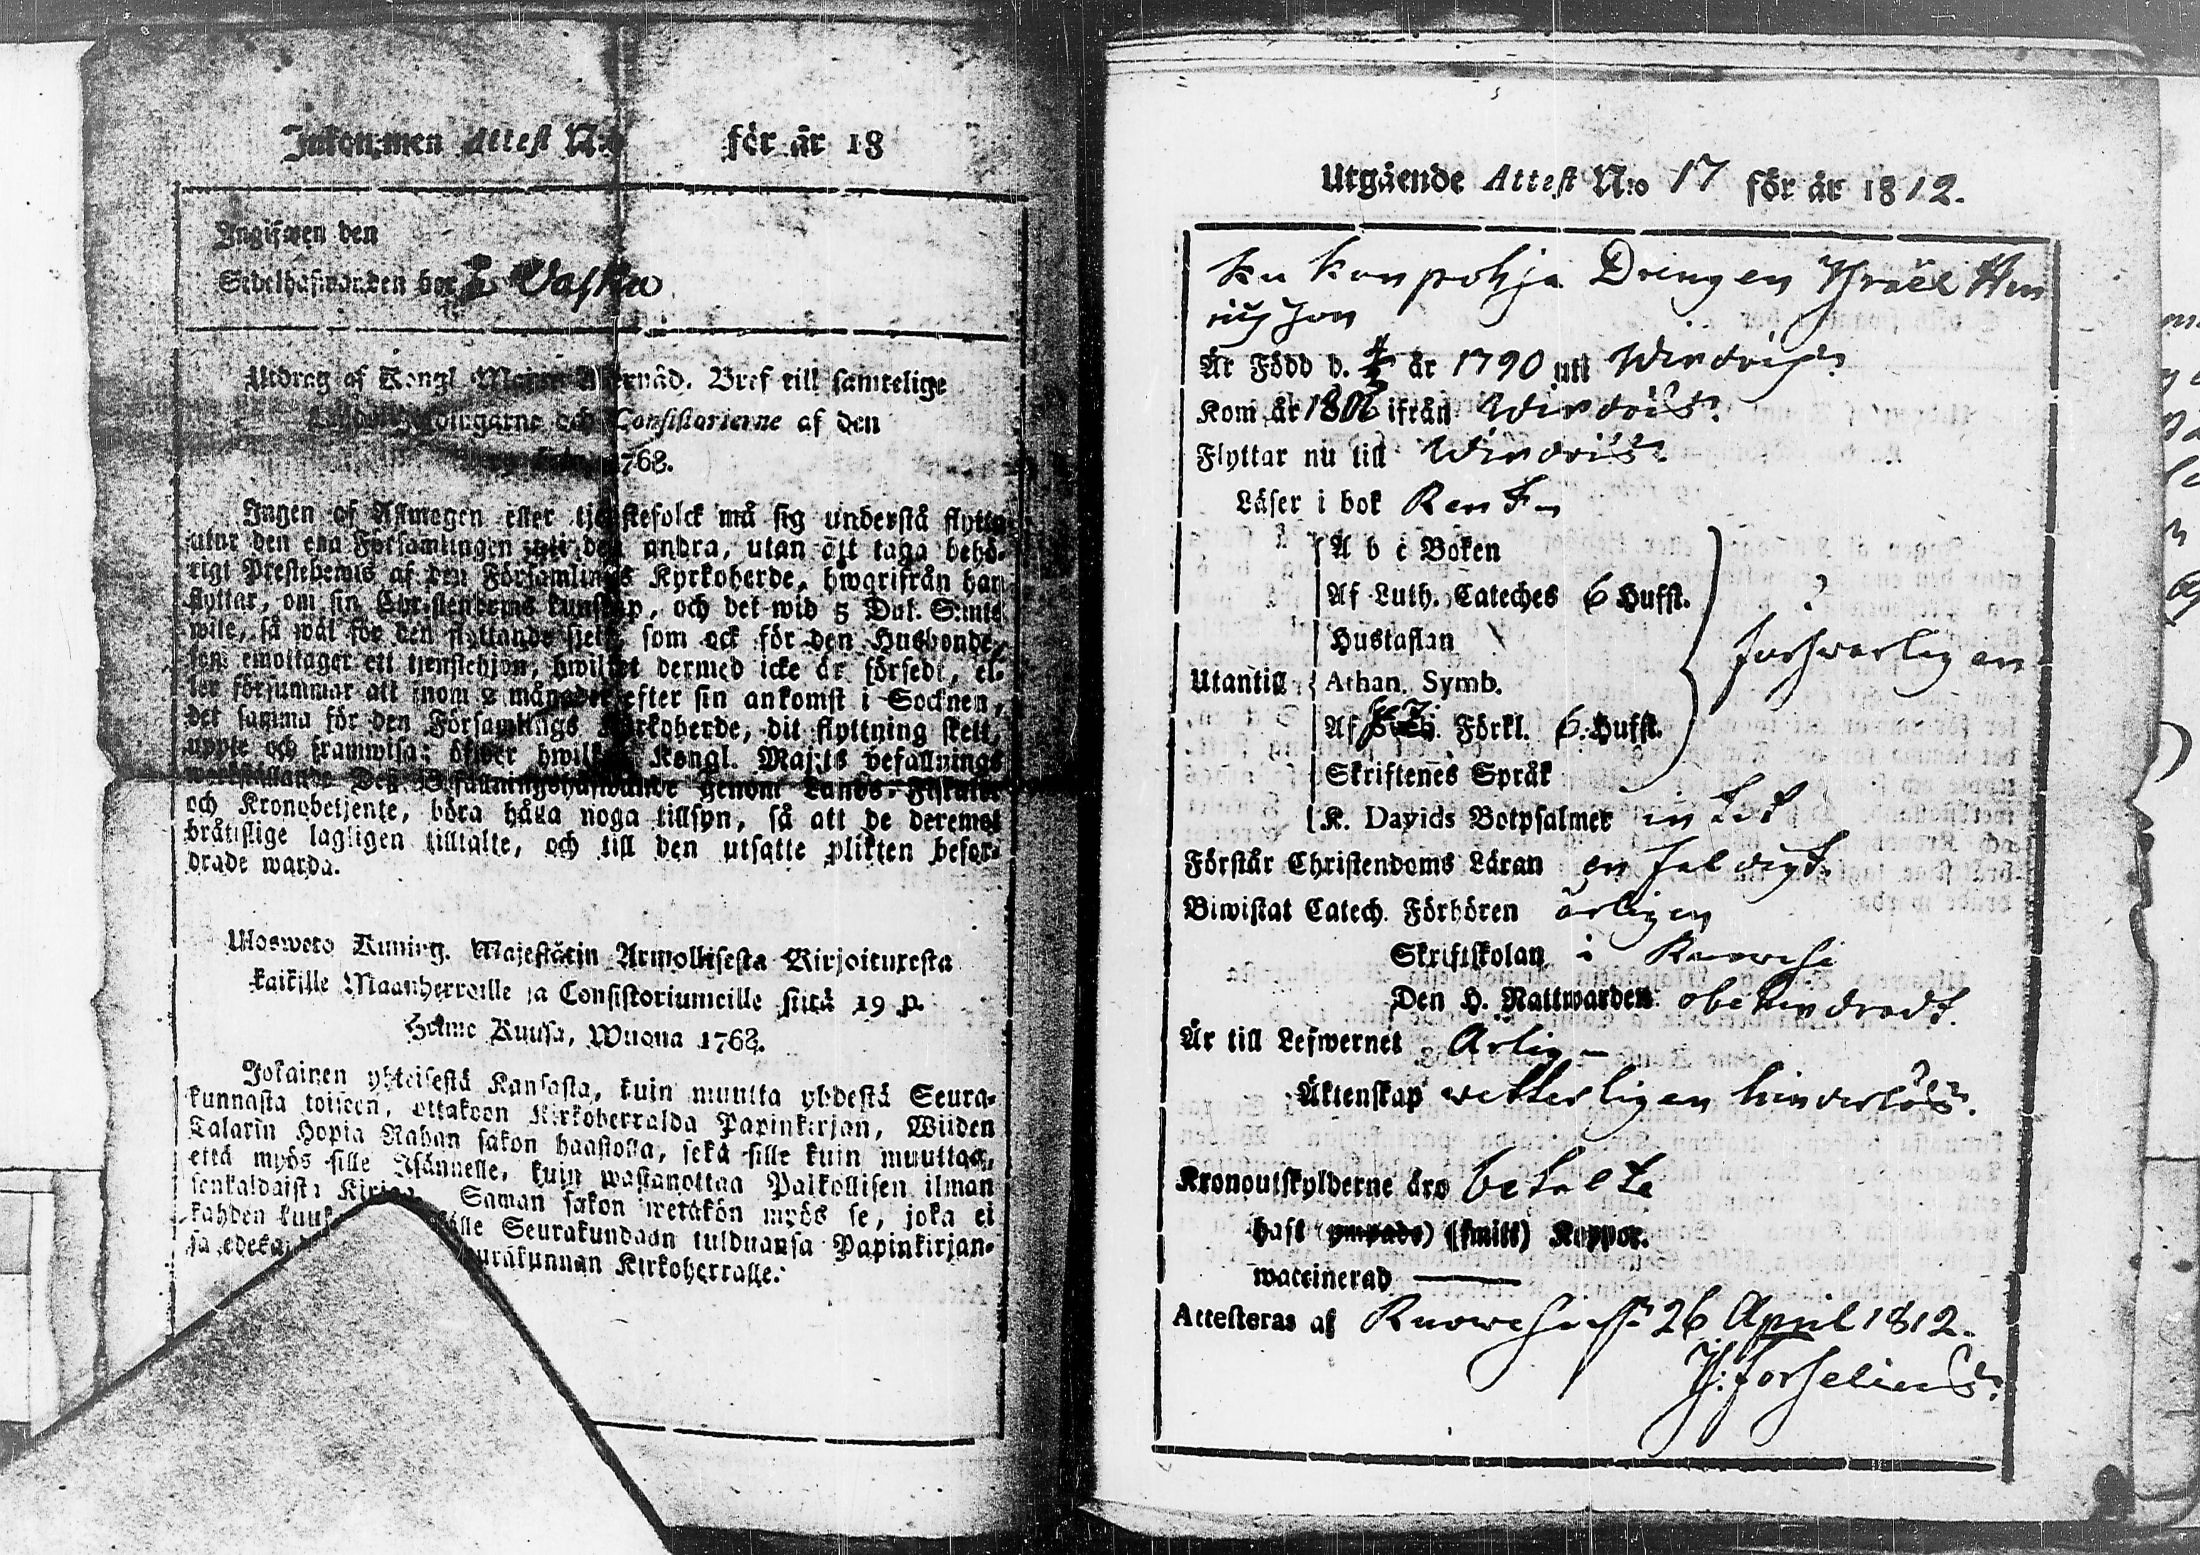 Inkommen Attest N:o för år 18
Ingifwen den
Sedelhafwanden bor i Vaska
Utdrag af Kongl. Maj:ts Bref till samtelige
och Consistorierne af den
1768.
Ingen af Allmogen eller tjenstefolck må sig understå flytta
utur den ena Församlingen till den andra, utan att taga behö-
rigt Prestebewis af den Församlings Kyrkoherde, hwarifrån han
flyttar, om sin Christendoms kunskap, och det wid 5 Dal. S:mts
wite, så wäl för den flyttande sjelf, som ock för den Husbonde,
som emottager ett tjenstehjon, hwilket dermed icke är försedt, el-
ler försummar att inom 2 månader efter sin ankomst i Socknen,
det samma för den Församlings Kyrkoherde, dit flyttning skett,
uppte och framwisa; öfwer hwilket Kongl. Maj:ts befallnings
werkställande Dess Befallningshafwande genom Lands-Fiskaler
och Kronobetjente, böra hålla noga tillsyn, så att de deremot
bråtslige lagligen tilltalte, och till den utsatte plikten befor-
drade warda.
Ulosweto Kuning. Majestätin Armollisesta Kirjoituxesta
kaikille Maanherroille ja Consistoriumeille siitä 19 p.
Helme Kuusa, Wuona 1768.
Jokainen yhteisestä Kansasta, kuin muutta yhdestä Seura-
kunnasta toiseen, ottakoon Kirkoherralda Papinkirjan, Wiiden
Talarin Hopia Rahan sakon haastolla, sekä sille kuin muuttaa,
että myös sille Isännelle, kuin wastanottaa Palkollisen ilman
senkaldaista Kirjaa. Saman sakon wetäkön myös se, joka ei
kahden kuuk Seurakundaan tulduansa Papinkirjan-
sa edeskan urakunnan Kirkoherralle.
Utgående Attest N:o 17 för år 1812.
Kukonpohja Drengen Israel Hen
richsson
Är Född d. år 1790 uti Wirdois
Kom år 1806 ifrån Wirdois
Flyttar nu till Wirdois
Läser i bok Rent
A b c Boken
Af Luth. Cateches 6 Hufst.
Hustaflan
försvarligen
Utantill Athan. Symb.
Af Förkl. 6 Hufst.
Skriftenes Språk
K. Davids Botpsalmer intet
Förstår Christendoms Läran enfaldigt
Biwistat Catech. Förhören årligen
Skriftskolan i Ruowesi
Den H. Nattwarden obehindradt.
Är till Lefwernet Ärlig
Äktenskap vetterligen hinderlös.
Kronoutskylderne äro betalte
haft (ympade) (smitt) Koppor.
waccinerad —
Attesteras af Ruowesi 26 April 1812.
H: Forselius